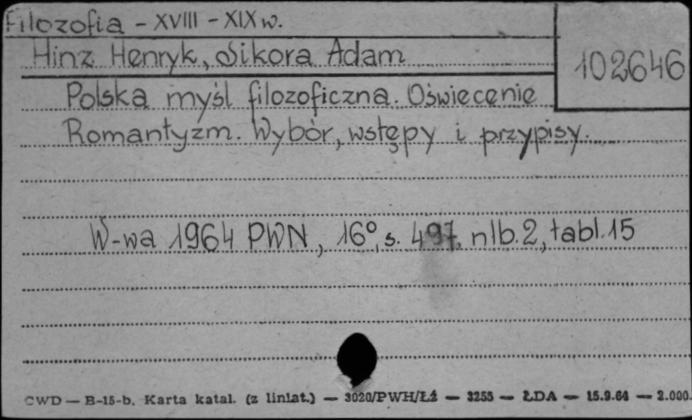 Filozofia - XVIII - XIX w.
Hinz Henryk, Sikora Adam
102646
Polska myśl filozoficzna. Oświecenie
Romantyzm. Wybór, wstępy i przypisy.
W-wa 1964 PWN, 16°, s. 497, nlb. 2, tabl. 15
CWD — B-15-b. Karta katal. (z liniat.) — 3020/PWH/Łź — 3255 — ŁDA — 15.9.64 — 2.000.